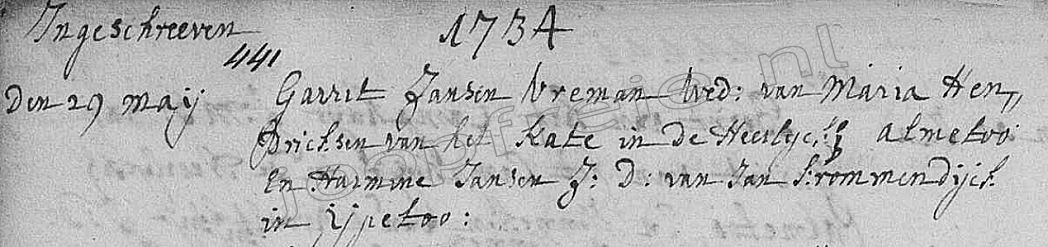 Ingeschreeven 1734
441
Den 29 maij Garrit Jansen Vreman Wed: van Maria Hen„
Dricksen van het Kate in de Heerlyckh Almeloo
En Harmine Jansen J: D: van Jan Krommendijck
in ijpeloo: